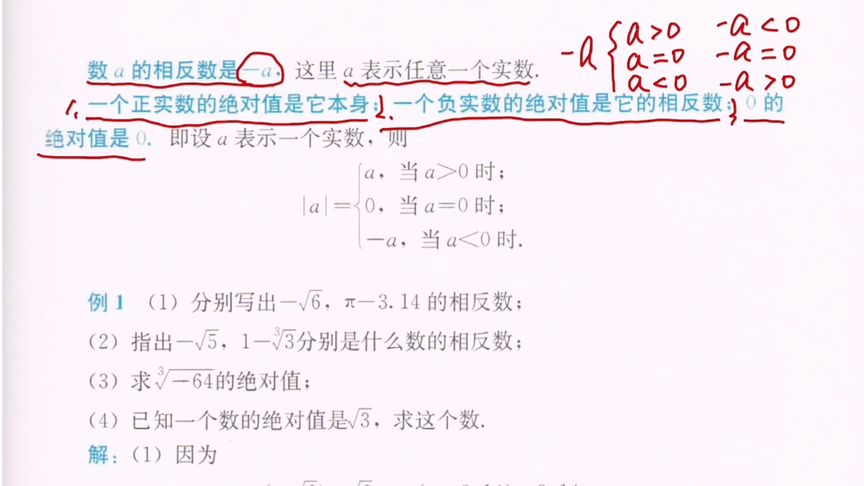 数 a 的相反数是 -a，这里 a 表示任意一个实数.
-a { a>0 -a<0
a=0 -a=0
a<0 -a>0
1. 一个正实数的绝对值是它本身；2. 一个负实数的绝对值是它的相反数；3 0 的
绝对值是 0. 即设 a 表示一个实数，则
|a|={ a，当 a>0 时；
0，当 a=0 时；
-a，当 a<0 时.
例 1 （1）分别写出-√6，π-3.14 的相反数；
（2）指出-√5，1-∛3分别是什么数的相反数；
（3）求∛-64的绝对值；
（4）已知一个数的绝对值是√3，求这个数.
解：（1）因为